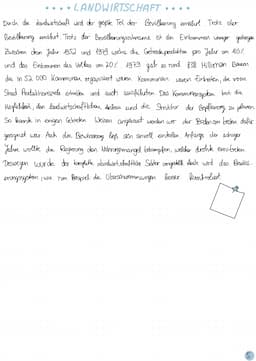 LANDWIRTSCHAFT
Durch die Landwirtschaft wird der große Teil der Bevölkerung ernährt Trotz der
Bevölkerung ernährt. Trotz der Bevölkerungsdichte ist ein Einkommen weniger gestiegen
Zwischen den Jahren 1952 und 1979 wuchs die Getreideproduktion pro Jahr um
und das Einkommen des Volkes um 20% 1973 gab es rund 818 Millionen Bauern
die in 52 000 Kommunen organisiert waren Kommunen waren Einheiten, die vom
Staat erhielten und auch ausführten Das Kommunesystem hat die
Möglichkeit, den landwirtschaftlichen und die Struktur der Bepflanzung zu planen
So konnte in einigen Gebieten Weizen angebaut werden wo der Boden am besten dafür
geeignet war Auch die Bewässerung ließ sich schnell erstellen Anfangs der
Jahre wollte die Regierung den Nahrungsmangel bekämpfen, welcher
Deswegen wurde der landwirtschaftliche Sektor umgestellt auch wird das
wie zum Beispiel die Überschwemmungen besser kontrolliert